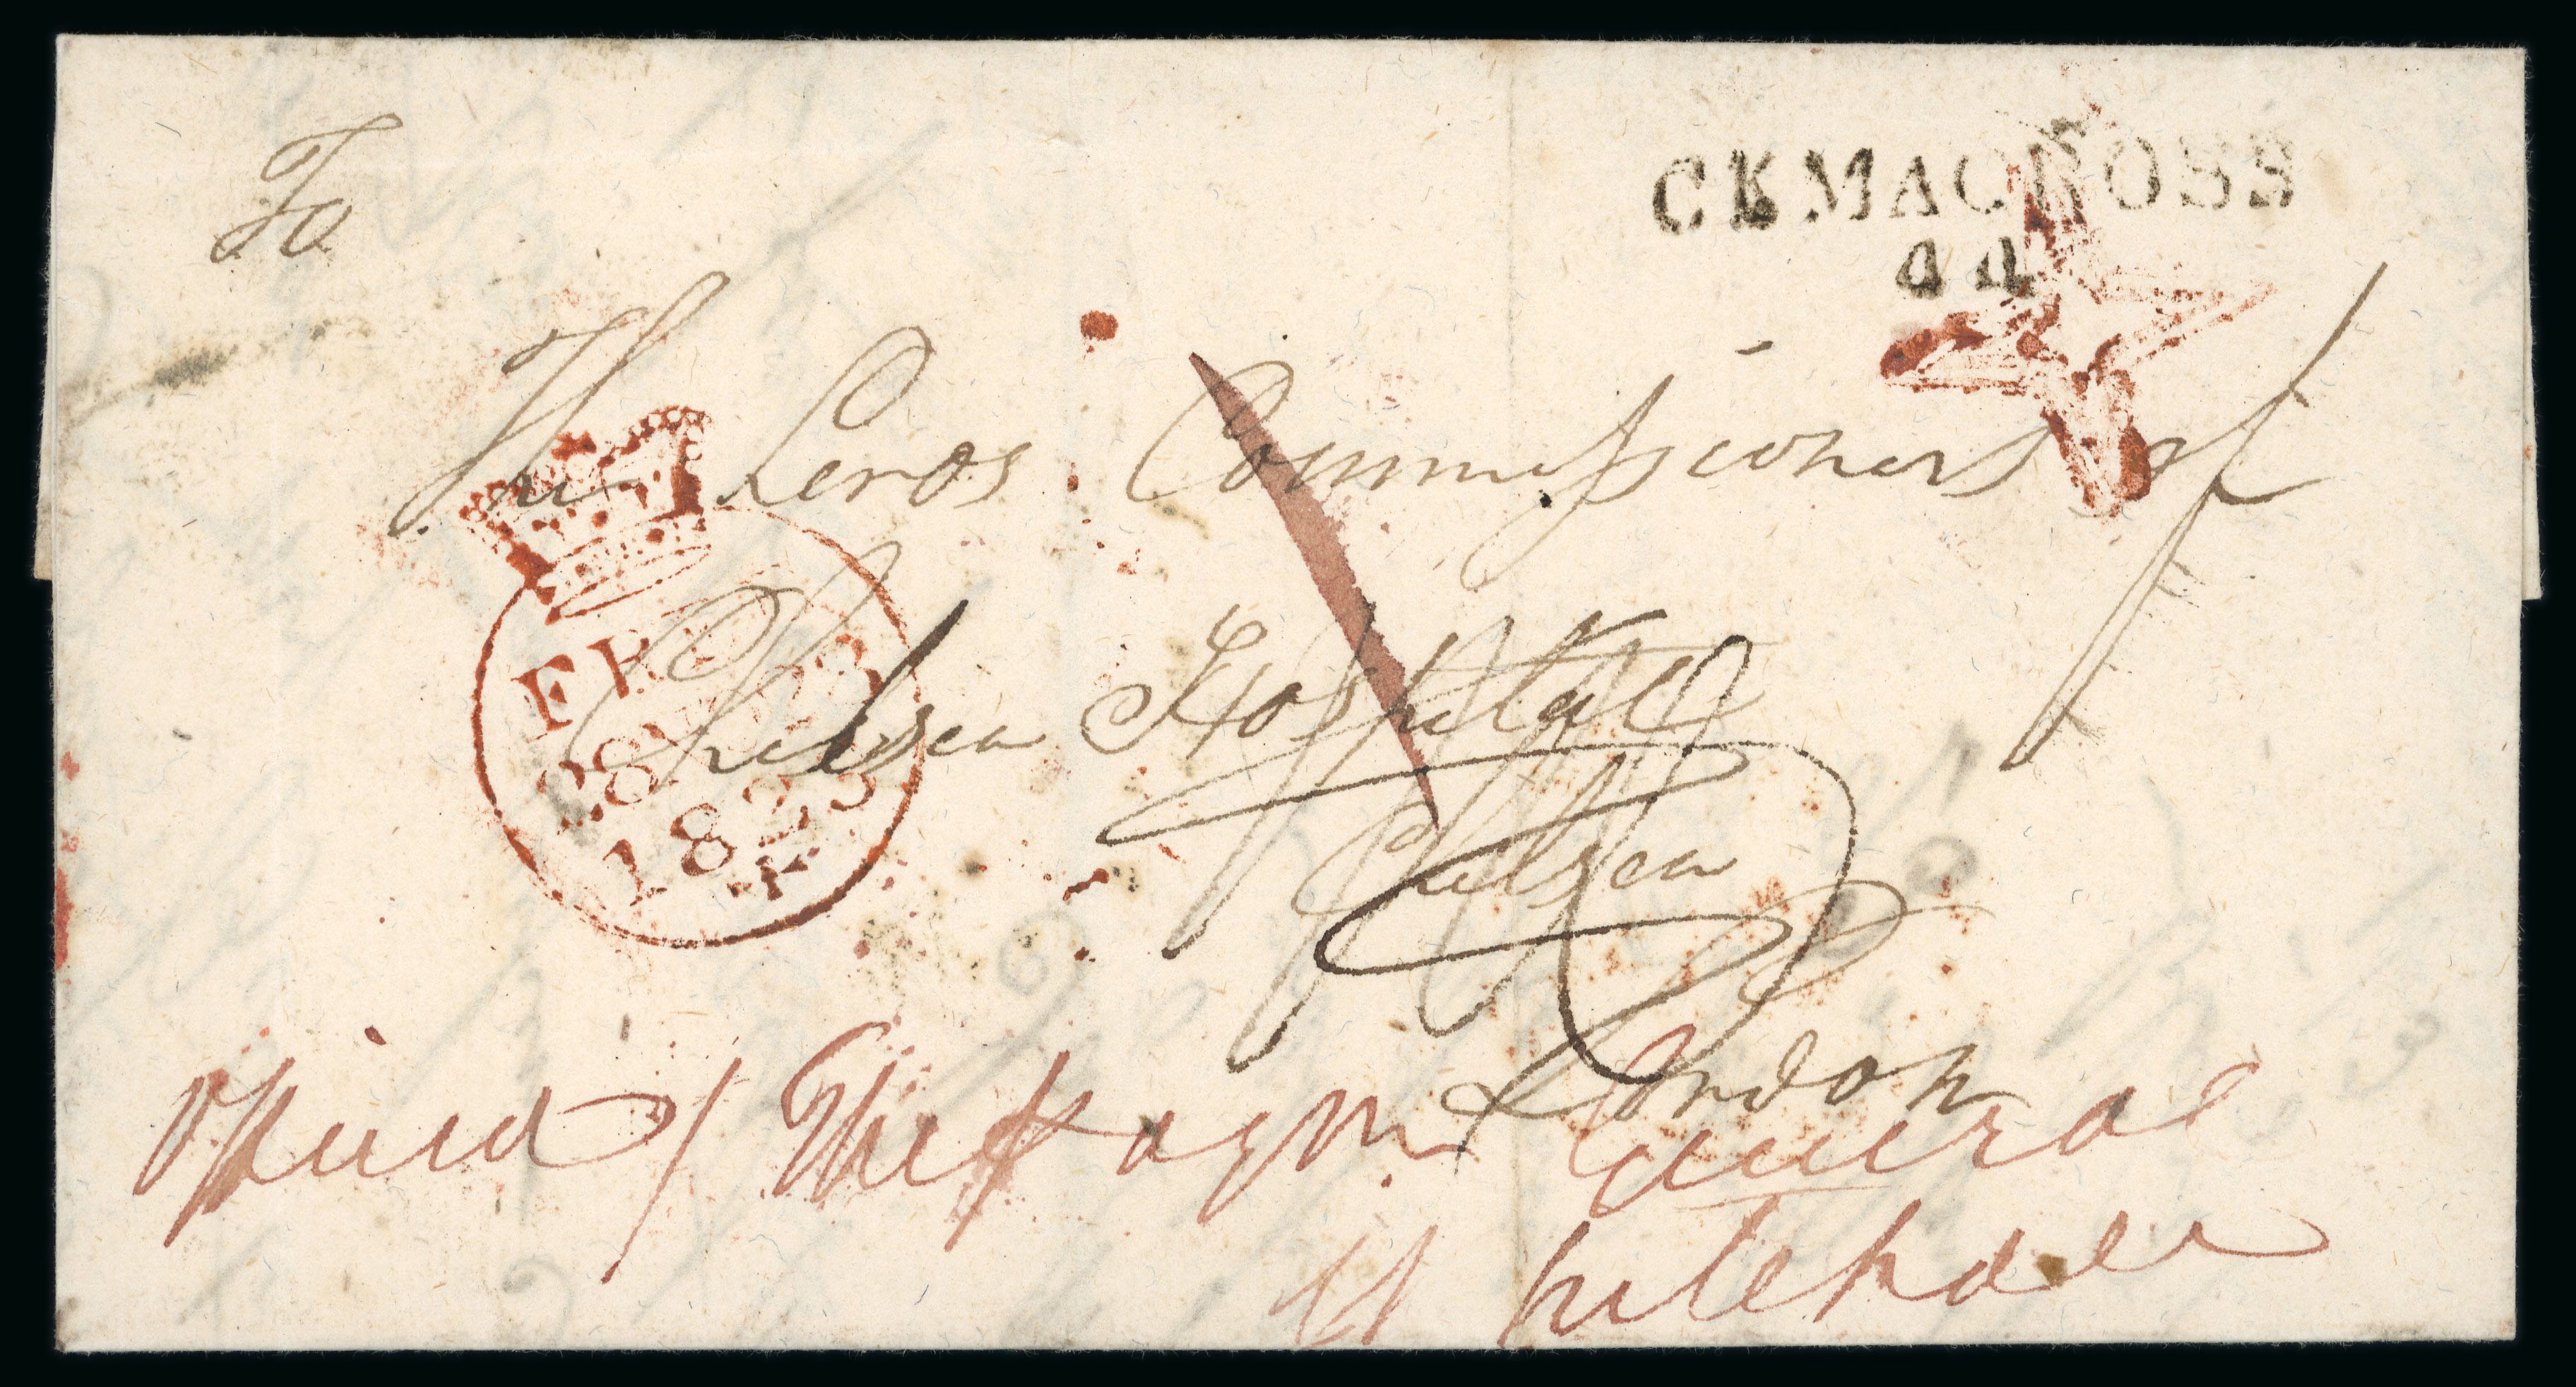 To
CKMACROSS
44
The Lords Commissioners of
Chelsea Hospital
Chelsea
London
FREE
1823
Paymr General
Whitehall